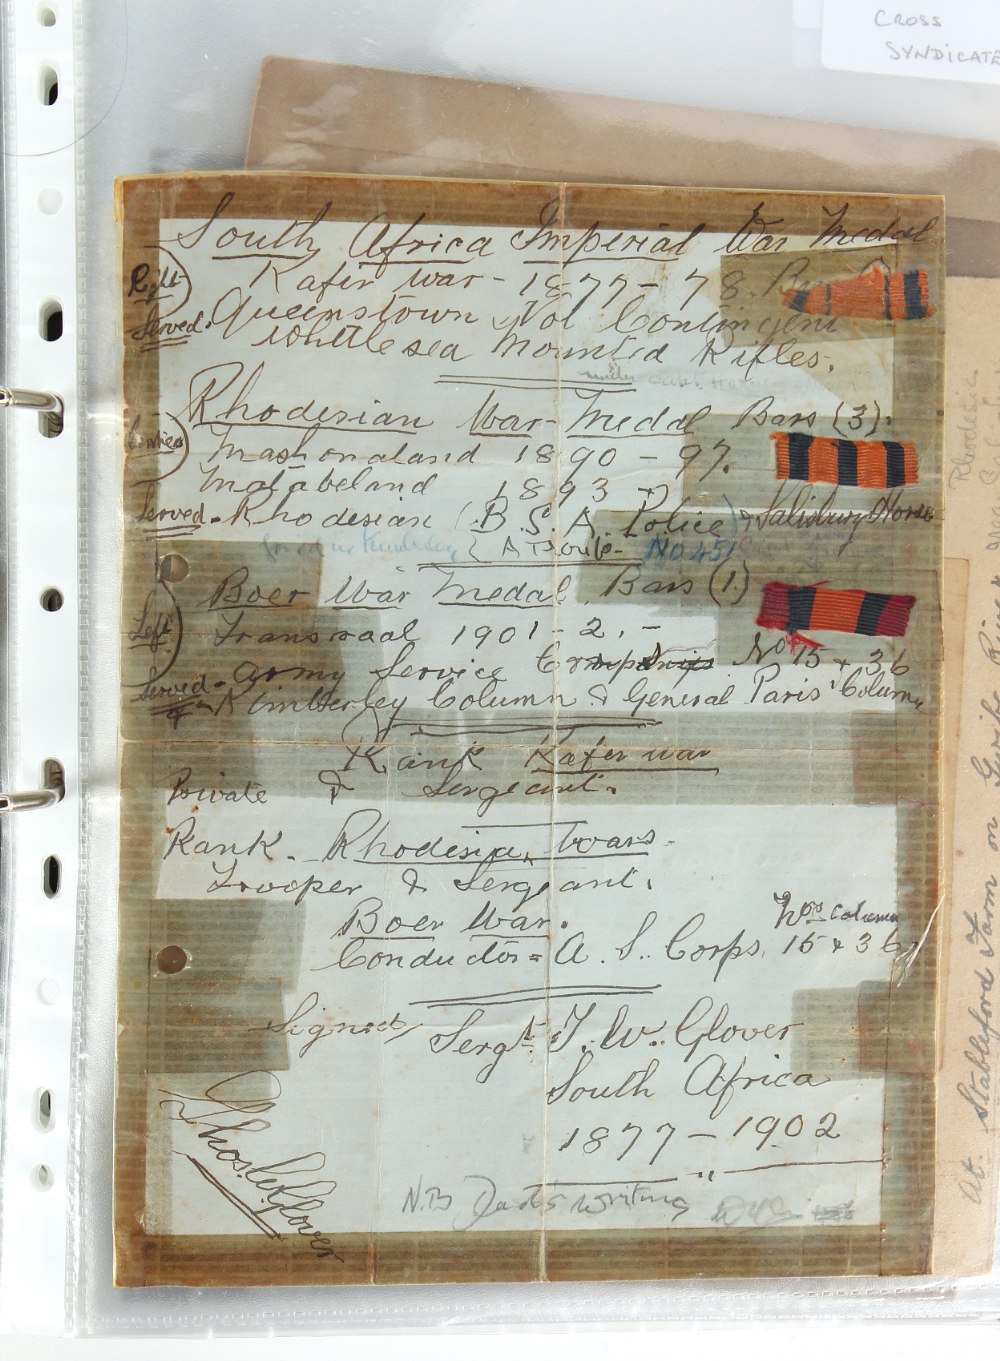 CROSS
SYNDICATE
South Africa Imperial War Medal
Right
Kafir War - 1877 - 78.
Served. Queenstown Vol Contingent
Whittlesea Mounted Rifles.
under Capt.
Rhodesian War Medal Bars (3).
Centre
Mashonaland 1890 - 97.
Matabeland 1893
Served - Rhodesian (B. S. A. Police) & Salisbury Horse
Joined in Kimberley { A Troop - No 451
Boer War Medal. Bars (1.)
Left
Transvaal 1901 - 2. -
Served - Army Service No 15 & 36
Kimberley Column & General Paris' Column
Rank Kafir War
Private & Sergeant.
Rank - Rhodesia Wars.
Trooper & Sergeant.
Boer War. Column
Conductor = A. S. Corps. 15 & 36
Signed, Sergt. T. W. Glover
South Africa
1877 - 1902
"
Thos. W. Glover
N.B Dad's writing
Rhodesia
At. Stableford Farm on